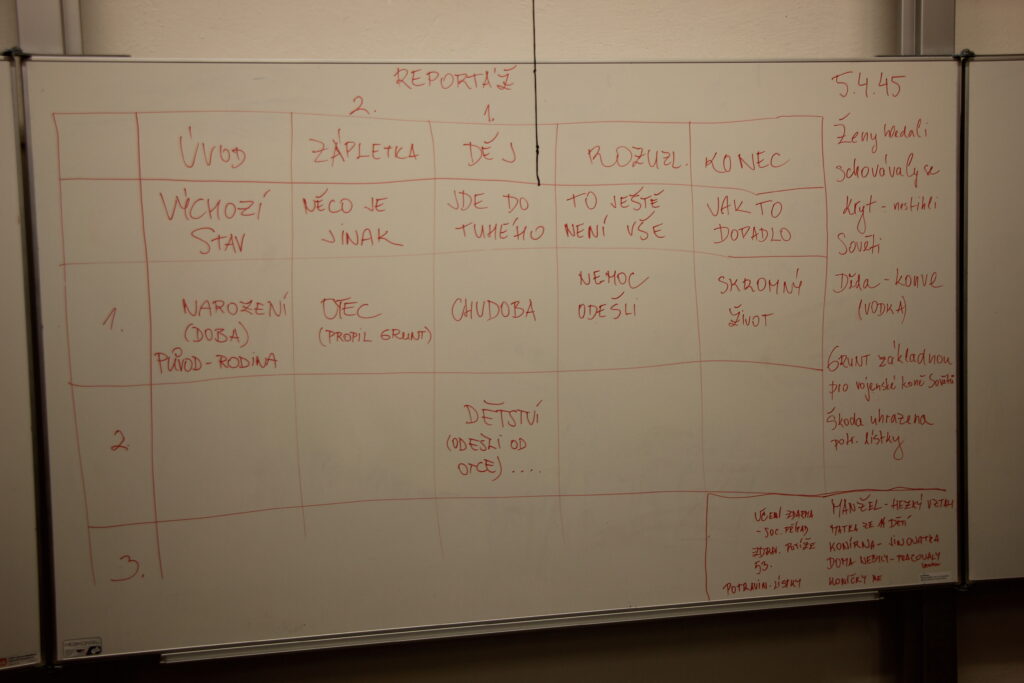 REPORTÁŽ
2.
1.
ÚVOD
ZÁPLETKA
DĚJ
ROZUZL.
KONEC
VÝCHOZÍ
STAV
NĚCO JE
JINAK
JDE DO
TUHÉHO
TO JEŠTĚ
NENÍ VŠE
JAK TO
DOPADLO
1.
NAROZENÍ
(DOBA)
PŮVOD-RODINA
OTEC
(PROPIL GRUNT)
CHUDOBA
NEMOC
ODEŠLI
SKROMNÝ
ŽIVOT
2
DĚTSTVÍ
(ODEŠLI OD
OTCE) ....
3.
5.4.45
Ženy hledali
schovávaly se
kryt - nestihli
Sověti
Děda - konve
(VODKA)
GRUNT základnou
pro vojenské koně Sovětů
škoda uhrazena
potr. lístky
UČENÍ ZDARMA
- SOC. PŘÍPAD
ZDRAV. POTÍŽE
53.
POTRAVIN. LÍSTKY
MANŽEL - HEZKÝ VZTAH
MATKA ZE 11 DĚTÍ
KONÍRNA - JINONATKA
DOMA NEBYLY - PRACOVALY
KONÍČKY NE